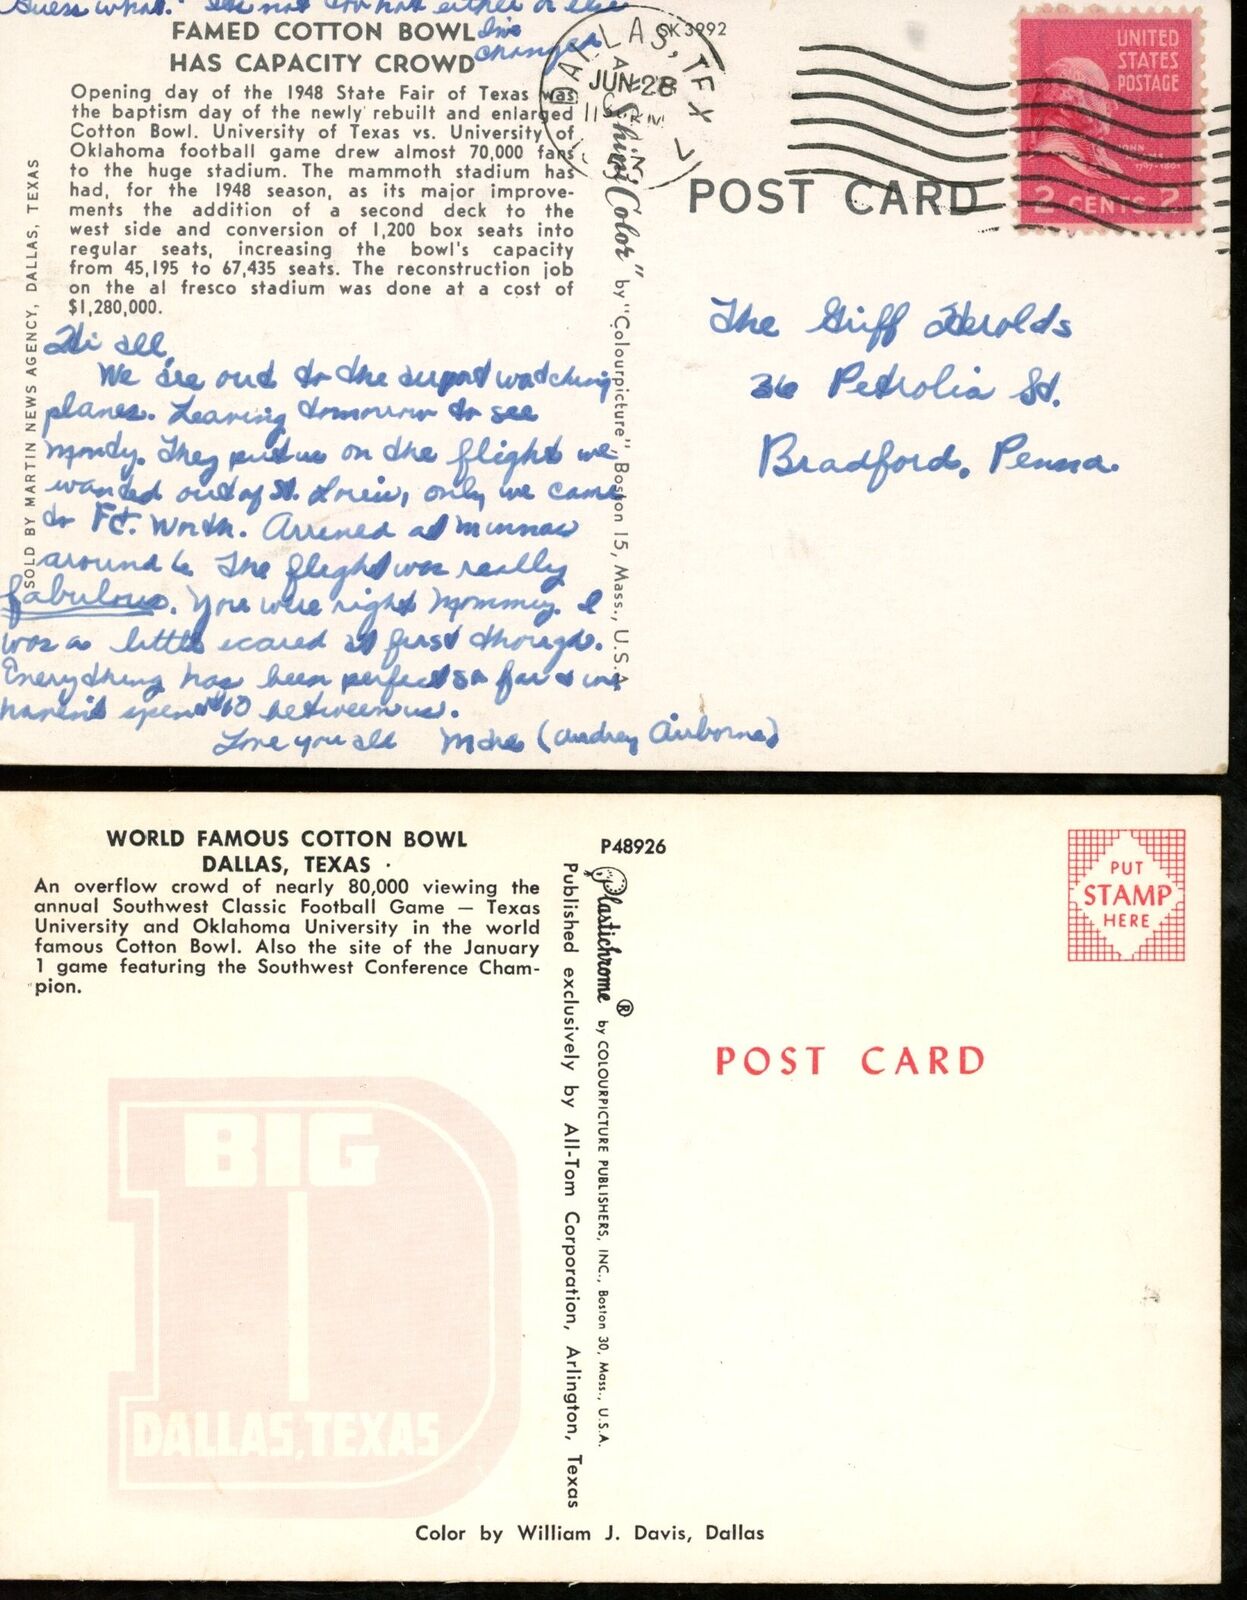 Guess what? It's not too hot either or else
I've
changed
FAMED COTTON BOWL
HAS CAPACITY CROWD
SK 3992
Opening day of the 1948 State Fair of Texas was
the baptism day of the newly rebuilt and enlarged
Cotton Bowl. University of Texas vs. University of
Oklahoma football game drew almost 70,000 fans
to the huge stadium. The mammoth stadium has
had, for the 1948 season, as its major improve-
ments the addition of a second deck to the
west side and conversion of 1,200 box seats into
regular seats, increasing the bowl's capacity
from 45,195 to 67,435 seats. The reconstruction job
on the al fresco stadium was done at a cost of
$1,280,000.
SOLD BY MARTIN NEWS AGENCY, DALLAS, TEXAS
Hi all,
We are out to the airport watching
planes. Leaving tomorrow to see
Monty. They put us on the flight we
wanted out of St. Louis, only we came
to Ft. Worth. Arrived at
around 6. The flight was really
fabulous. You were right Mommy. I
was a little scared at first though.
Everything has been perfect so far & we
haven't spent $10 between us.
Love you all (Audrey Airborne)
"Shini Color" by "Colourpicture", Boston 15, Mass., U.S.A.
DALLAS, TEX
JUN 28
11
POST CARD
UNITED
STATES
POSTAGE
JOHN
1797-1801
2 CENTS 2
The Griff Herolds
36 Petrolia St.
Bradford, Penna.
WORLD FAMOUS COTTON BOWL
DALLAS, TEXAS
An overflow crowd of nearly 80,000 viewing the
annual Southwest Classic Football Game — Texas
University and Oklahoma University in the world
famous Cotton Bowl. Also the site of the January
1 game featuring the Southwest Conference Cham-
pion.
P48926
Plastichrome ® by COLOURPICTURE PUBLISHERS, INC., Boston 30, Mass., U.S.A.
Published exclusively by All-Tom Corporation, Arlington, Texas
PUT
STAMP
HERE
POST CARD
BIG
D
DALLAS, TEXAS
Color by William J. Davis, Dallas